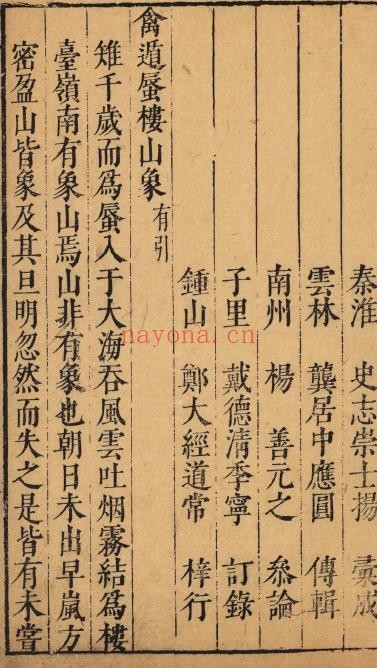 秦淮 史志崇士揚 彙成
雲林 龔居中應圓 傳輯
南州 楊善元之 叅論
子里 戴德淸季寧 訂錄
鍾山 鄭大經道常 梓行
禽遁蜃樓山象有引
雉千歲而爲蜃入于大海吞風雲吐烟霧結爲樓
臺嶺南有象山焉山非有象也朝日未出早嵐方
密盈山皆象及其旦明忽然而失之是皆有未嘗
nayona.cn